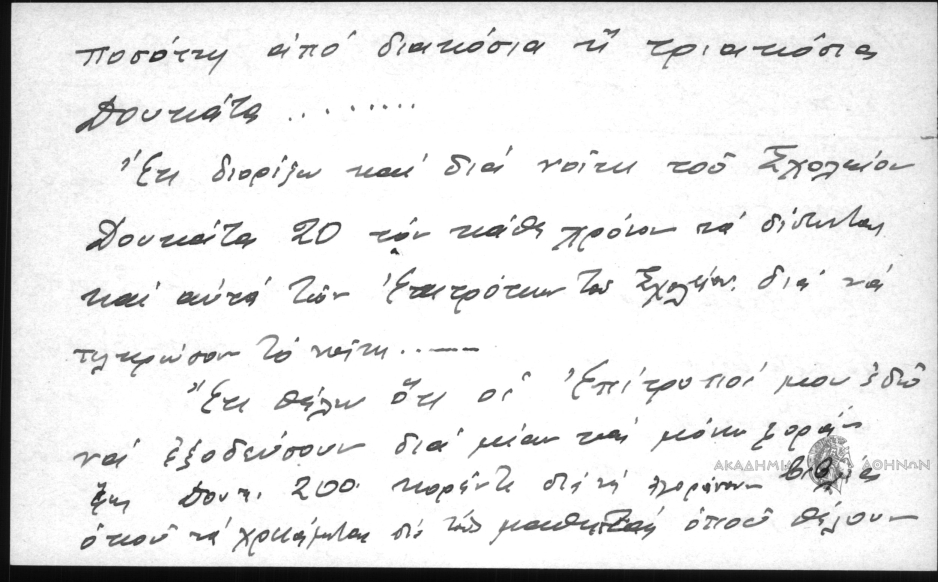 ποσότη ἀπό διακόσια ἤ τριακόσια
Δουκάτα .........
Ἔτι διορίζω καί διά νοίκι τοῦ Σχολείου
Δουκάτα 20 τόν κάθε χρόνον νά δίδωνται
καί αὐτά τῶν Ἐπιτρόπων τοῦ Σχολείου. διά νά
πληρώσουν τό νοίκι..——
Ἔτι θέλω ὅτι οἱ Ἐπίτροποί μου ἐδῶ
νά ἐξοδεύσουν διά μίαν καί μόνην φοράν
ἕως Δουκ. 200. κορέντε διά νά ἀγοράσουν βιβλία
ὁποῦ νά χρειάζωνται διά τούς μαθητάς ὁποῦ θέλουν
ΑΚΑΔΗΜΙΑ ΑΘΗΝΩΝ